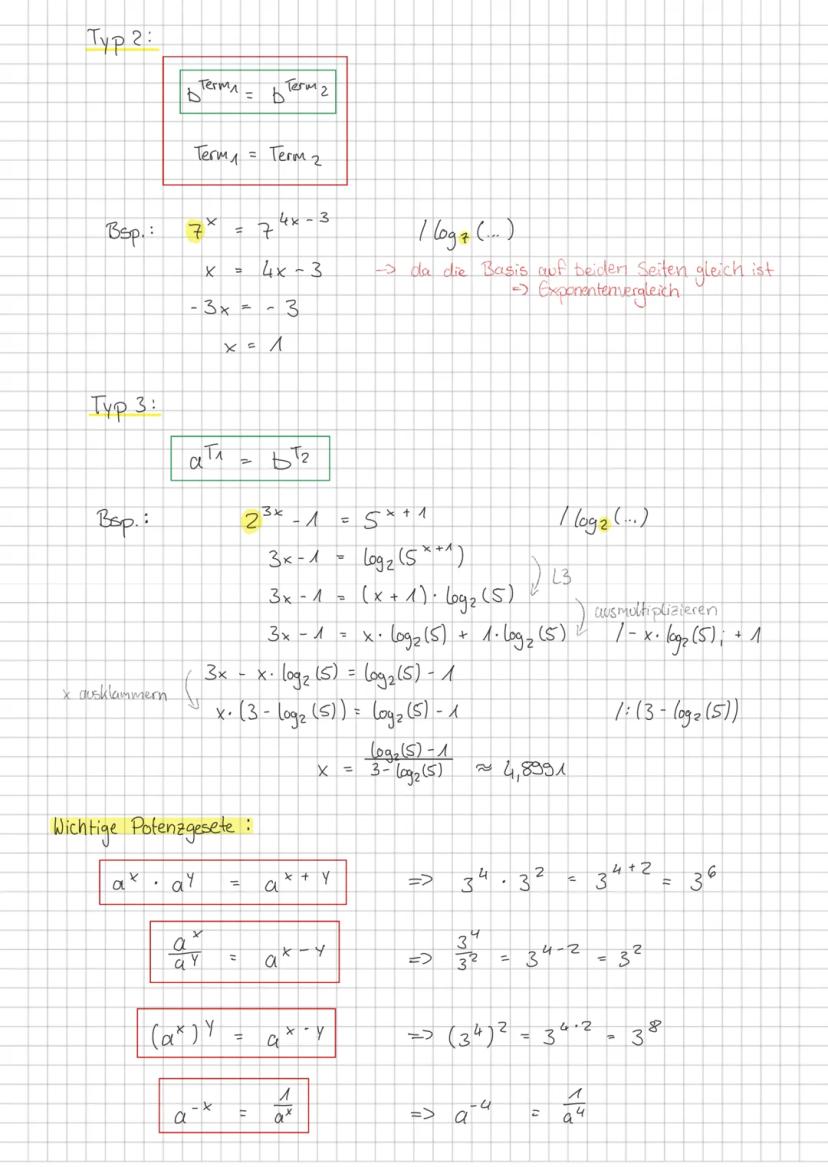 Typ 2:
b^Term1 = b^Term2
Term1 = Term2
Bsp.: 7^x = 7^(4x-3) / log₇(...)
x = 4x - 3 -> da die Basis auf beiden Seiten gleich ist
=> Exponentenvergleich
-3x = -3
x = 1
Typ 3:
a^T1 = b^T2
Bsp.: 2^3x - 1 = 5^(x+1) / log₂(...)
3x - 1 = log₂(5^(x+1))
L3
3x - 1 = (x + 1) · log₂(5)
ausmultiplizieren
3x - 1 = x · log₂(5) + 1 · log₂(5) / - x · log₂(5); + 1
3x - x · log₂(5) = log₂(5) - 1
x ausklammern
x · (3 - log₂(5)) = log₂(5) - 1 / : (3 - log₂(5))
x = (log₂(5) - 1)/(3 - log₂(5)) ≈ 4,8991
Wichtige Potenzgesete:
a^x · a^y = a^(x+y) => 3^4 · 3^2 = 3^(4+2) = 3^6
a^x/a^y = a^(x-y) => 3^4/3^2 = 3^(4-2) = 3^2
(a^x)^y = a^(x·y) => (3^4)^2 = 3^(4·2) = 3^8
a^-x = 1/a^x => a^-4 = 1/a^4